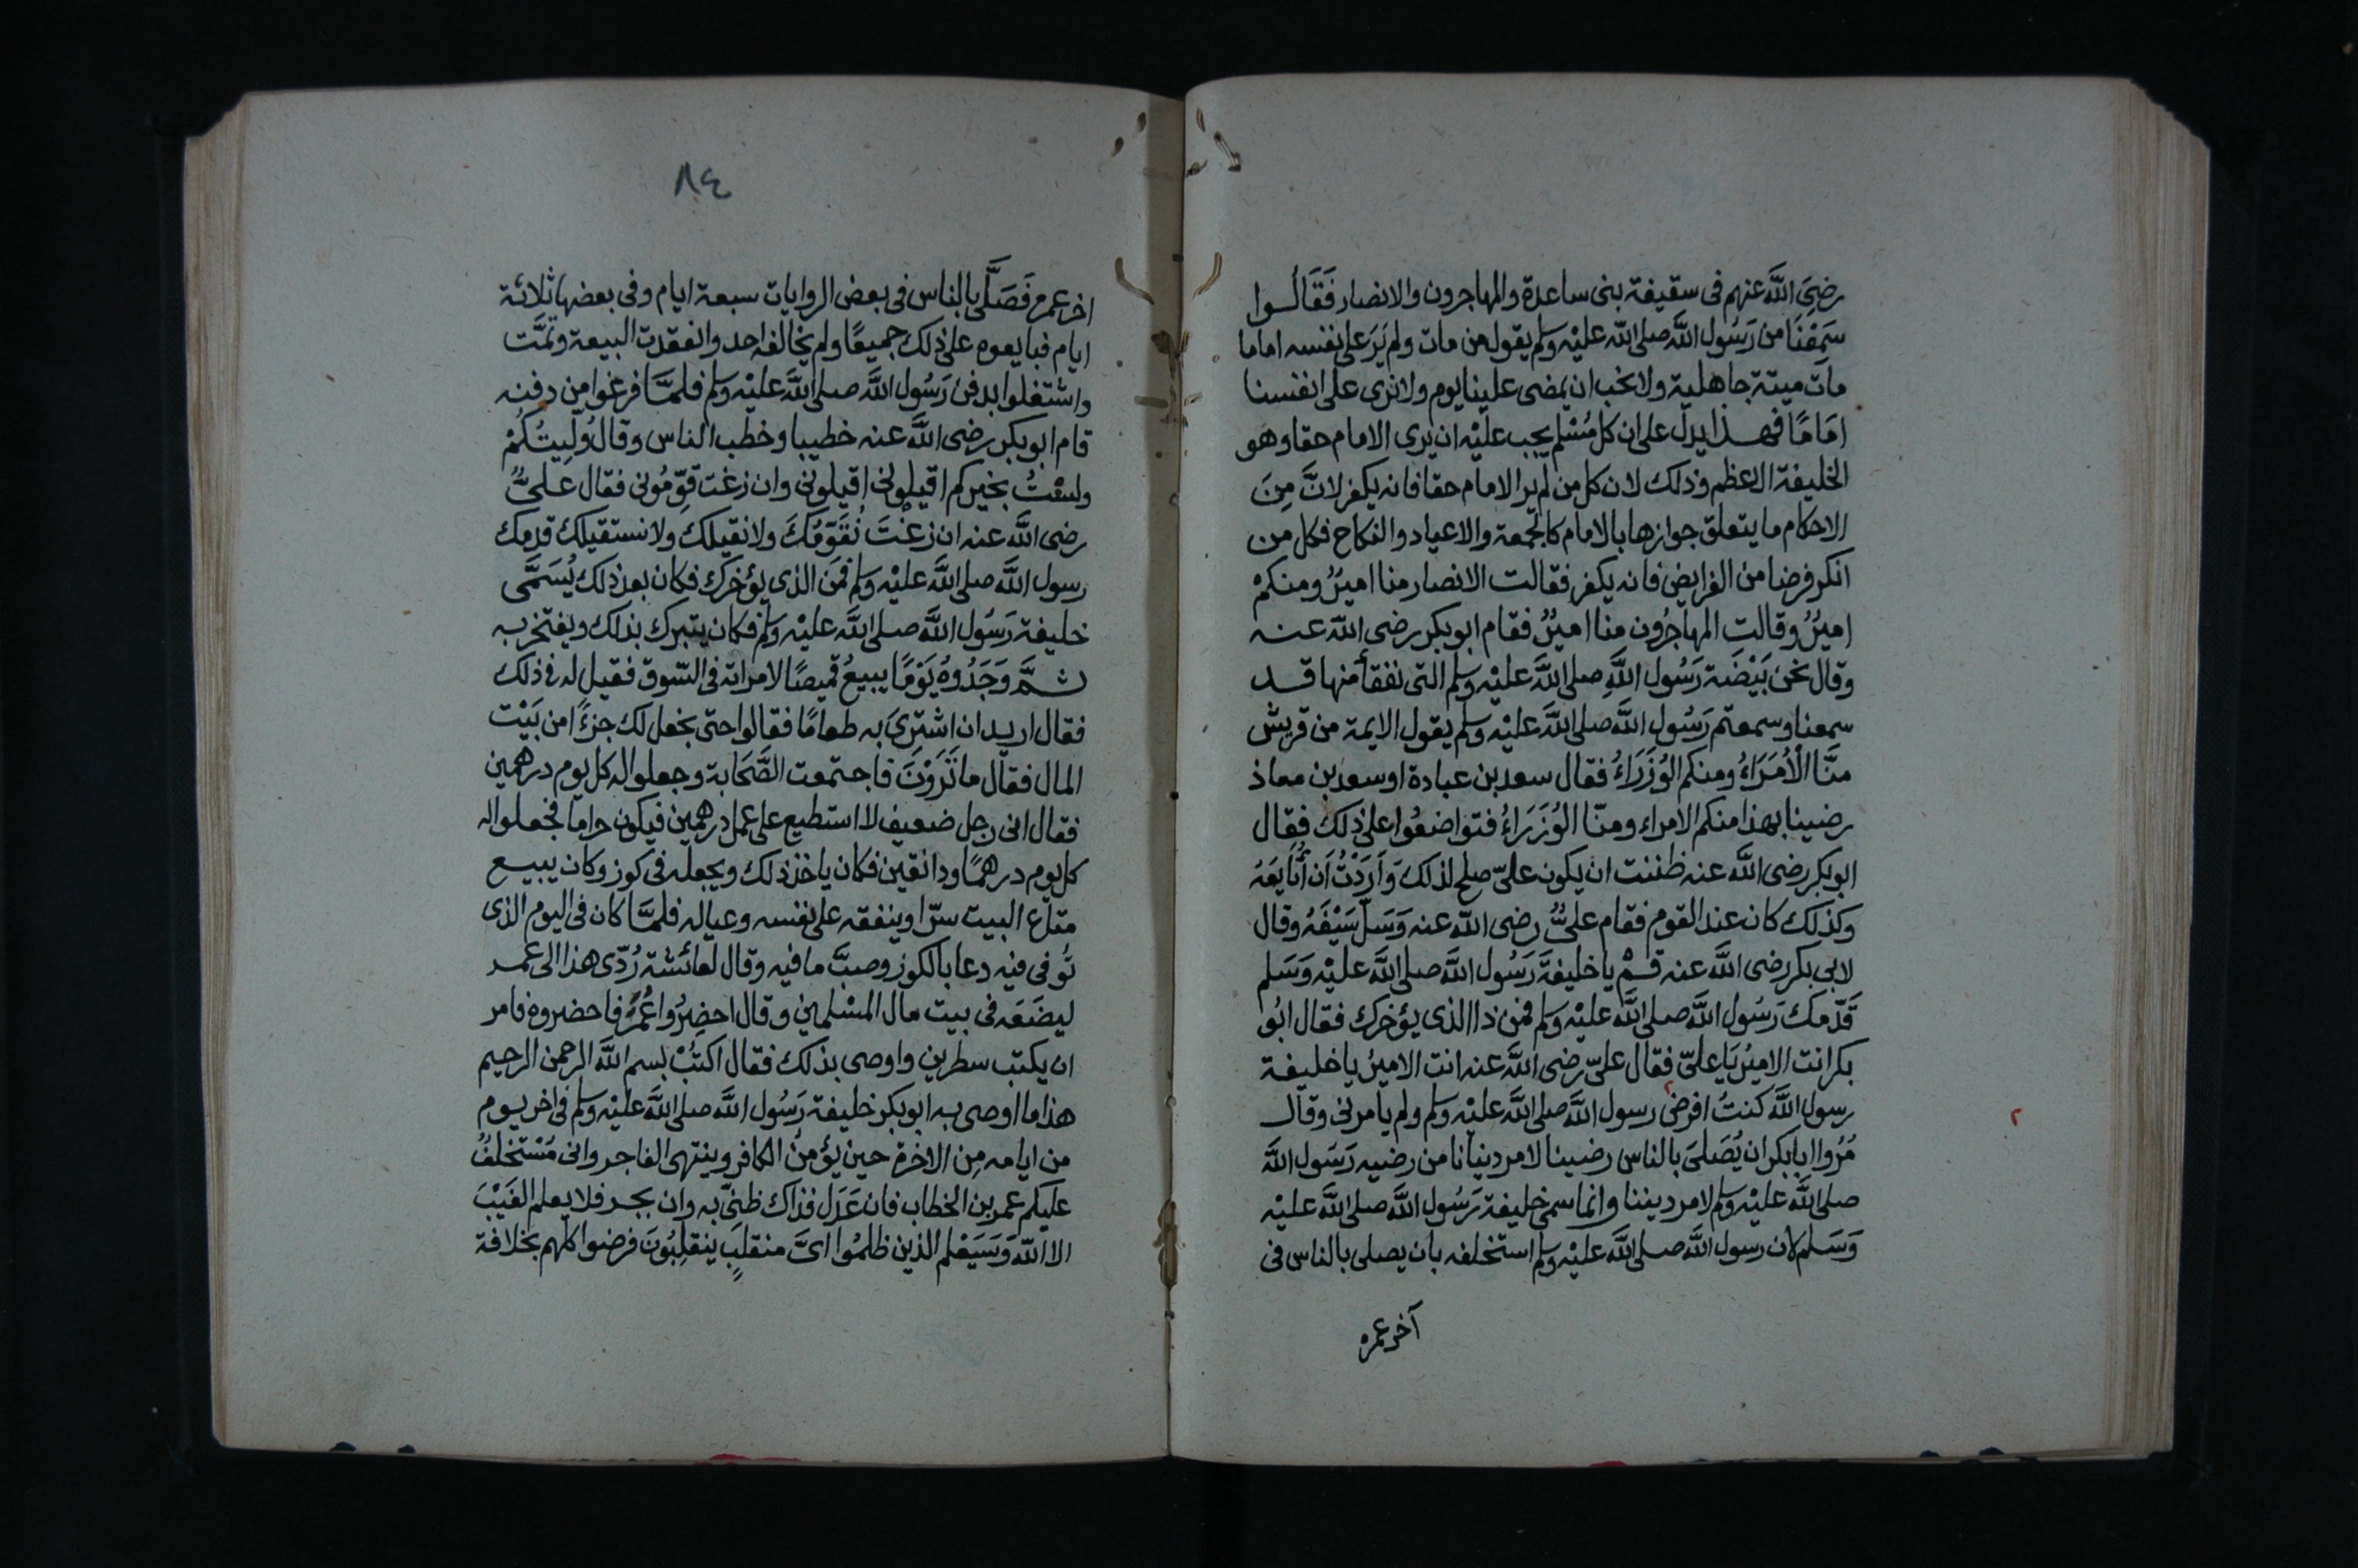 رضِىَ اللَّه عنهم فى سقيفة بنى ساعدة والمهاجرون والانصار فَقَالُــوا
سَمِعْنَا من رَسُول اللَّه صلى اللَّه عليْه وسلم يقول من مات ولم يَرَ على نفسه اماما
مات ميتة جاهلية ولا نحب ان يمضى علينا يوم ولا نرى على انفسنا
امَامًا فهــذا يدل على ان كل مُسْلم يجب عليْه ان يرى الامام حقا وهو
الخليفة الاعظم وذلك لان كل من لم ير الامام حقا فانه يكفر لانَّ مِنَ
الاحكام ما يتعلق جوازها بالامام كالجمعة والاعياد والنكاح فكل من
انكر فرضا من الفرايض فانه يكفر فقالت الانصار منا اميرٌ ومنكمْ
اميرٌ وقالت المهاجرُون منا اميرٌ فقام ابو بكر رضى اللَّه عنــه
وقال نحن بَيْضَة رَسُول اللَّهِ صلى اللَّه عليْه وسلم التى نفقأ منها قــد
سمعنا وسمعتم رَسُول اللَّه صلى اللَّه عليْه وسلم يقول الايمة من قريش
منَّا الْاُمَرَاءُ ومنكم الوُزَرَاءُ فقال سعد بن عبادة او سعد بن معاذ
رضينا بهذا منكم الامراء ومنّا الوُزَرَاءُ فتواضعُوا على ذلك فقال
ابو بكر رضى اللَّه عنه ظننت ان يكون علىّ صلح لذلك وَاَرَدْتُ اَن أُبَايعَهُ
وكذلك كان عند القوم فقام علىٌّ رضى اللّه عنه وَسَلَّ سَيْفَهُ وقال
لابى بكر رضى اللَّه عنه قــمْ يا خليفَةَ رَسُول اللَّه صلى اللَّه عليْه وَسَلم
قَدّمكَ رَسُول اللَّه صلى اللَّه عليْه وسلم فمن ذا الذى يؤخرك فقال ابُو
بكر انت الاميُر يَا علىّ فقال علىّ رضى اللَّه عنه انت الاميُر يا خليفــة
رسول اللَّه كنتُ افرضى رسول اللَّه صلى اللَّه عليْه وسلم ولم يامرنى وقال
مُرُوا ابا بكر ان يُصَلىَ بالناس رضينا لامر دنيانا من رضيه رَسُول اللَّه
صلى اللَّه عليْه وسلم لامر ديننا وانما سمى خليفة رَسُول اللَّه صلى اللَّه عليْه
وَسَلم لان رسول اللَّه صلى اللَّه عليْه وسلم استخلفه بان يصلى بالناس فى
آخر عمره
٢
٢
٨٤
اخر عمره فَصَلَّى بالناس فى بعض الروايات سبعة ايام وفى بعضها ثلاثة
ايام فبايعوه على ذلك جميعًا ولم يخالفه احد وانعقدت البيعة وتمَّت
واشتغلوا بدفن رَسُول اللَّه صلى اللَّه عليْه وسلم فلمــَّا فرغوا من دفنه
قام ابو بكر رضى اللَّه عنه خطيبا وخطب الناس وقال وُلِيتُكُمْ
ولسْتُ بخيركم اقيلونى اقيلونى وان زغت قوّمُونى فقال عــلىٌّ
رضى اللَّه عنه ان زغْتَ نُقَوّمُكَ ولا نقيلك ولا نستقيلك قدمك
رسول اللَّه صلى اللَّه عليْه وسلم فمَن الذى يؤخرك فكان بعد ذلك يُسَمَّى
خليفة رَسُول اللَّه صلى اللَّه عليْه وسلم فكان يتبرك بذلك ويفتخر به
ثــمَّ وَجَدُوهُ يَوْمًا يبيعُ قميصًا لامراته فى السّوق فقيل له فى ذلك
فقال اريد ان اشترىَ به طعامًا فقالوا حتى نجعل لك جزءًا من بَيْت
المال فقال ما تَرَوْنَ فاجتمعت الصَّحَابة وجعلوا له كل يوم درهمين
فقال انى رجل ضعيف لا استطيع على عمل درهمين فيكون حراما فجعلوا له
كل يوم درهمًا ودانقين فكان ياخذ ذلك ويجعله فى كوز وكان يبيــع
متاع البيت سرّا وينفقه على نفسه وعياله فلمــَّا كان فى اليوم الذى
تُوفى فيه دعا بالكوز وصبَّ ما فيه وقال لعائشة رُدّى هذا الى عمــر
ليضَعَه فى بيت مال المسْلمين وقال احضِرُوا عُمَرَ فاحضروه فامر
ان يكتب سطرين واوصى بذلك فقال اكتُبْ بسم اللَّه الرحمن الرحيم
هذا ما اوصى بــه ابو بكر خليفة رَسُول اللَّه صلى اللَّه عليْه وسلم فى اخر يــوم
من ايامه مِن الاخرة حين يؤمنُ الكافر وينتهى الفاجر وانى مُسْتخْلفٌ
عليكم عمر بن الخطاب فان عَدَل فذاك ظنىّ به وان يجــر فلا يعلم الغَيْبَ
الا اللّه وَسَيَعْلم الذين ظلمُوا اىَّ منقلبٍ ينقلِبُونَ فرضوا كلهم بخلافة